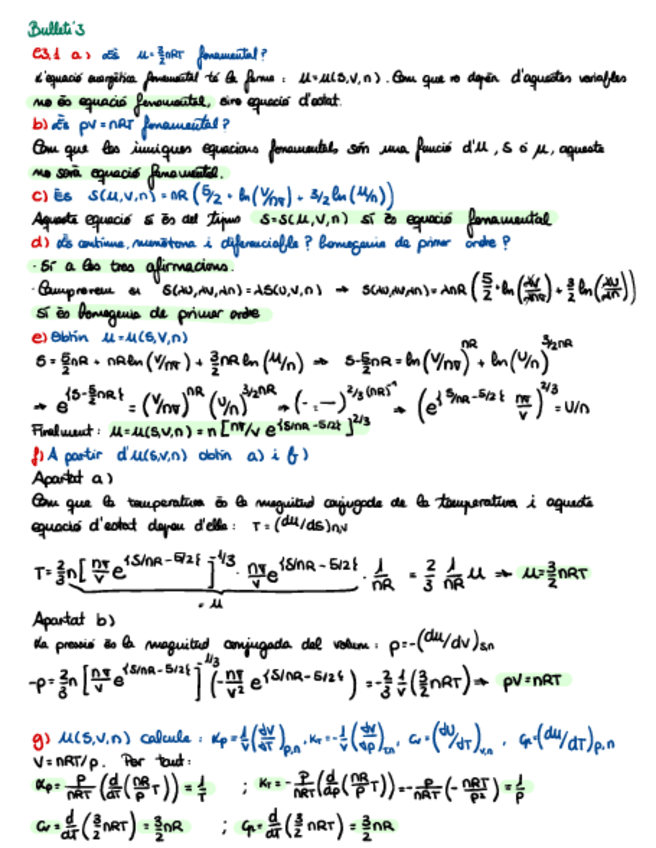 Butlletí 3
E3.1 a) És U=3/2nRT fonamental?
L'equació energètica fonamental té la forma: U=U(S,V,n). Com que no depèn d'aquestes variables
no és equació fonamental, sino equació d'estat.
b) És pV=nRT fonamental?
Com que les úniques equacions fonamentals són una funció d'U, S o μ, aquesta
no serà equació fonamental.
c) És S(U,V,n)=nR(5/2+ln(V/nv)+3/2ln(U/n))
Aquesta equació si és del tipus S=S(U,V,n) sí és equació fonamental
d) És contínua, monòtona i diferenciable? homogenia de primer ordre?
· Sí a les tres afirmacions.
· Comprovem si S(λU,λV,λn)=λS(U,V,n) → S(λU,λV,λn)=λnR(5/2+ln(λV/λnv)+3/2ln(λU/λn))
Sí és homogenia de primer ordre
e) Obtín U=U(S,V,n)
S=5/2nR+nRln(V/nv)+3/2nRln(U/n) ⇒ S-5/2nR=ln(V/nv)^nR+ln(U/n)^3/2nR
⇒ e^{S-5/2nR}=(V/nv)^nR(U/n)^3/2nR → (-.-)^2/3(nR)^-1 → (e^{S/nR-5/2} nv/V)^2/3=U/n
Finalment: U=U(S,V,n)=n[nv/V e^{S/nR-5/2}]^2/3
f) A partir d'U(S,V,n) obtín a) i b)
Apartat a)
Com que la temperatura és la magnitud conjugada de la temperatura i aquesta
equació d'estat depen d'ella: T=(dU/dS)n,V
T=2/3n[nv/V e^{S/nR-5/2}]^-1/3 · nv/V e^{S/nR-5/2} · 1/nR = 2/3 1/nR U ⇒ U=3/2nRT
=U
Apartat b)
La pressió és la magnitud conjugada del volum: p=-(dU/dV)s,n
-p=2/3n[nv/V e^{S/nR-5/2}]^-1/3(-nv/V² e^{S/nR-5/2})=-2/3 1/V(3/2nRT) ⇒ pV=nRT
g) U(S,V,n) calcula: αp=1/V(dV/dT)p,n, KT=-1/V(dV/dp)T,n, Cv=(dU/dT)V,n, Cp=(dU/dT)p,n
V=nRT/p. Per tant:
αp=p/nRT(d/dT(nR/p T))=1/T ; KT=-p/nRT(d/dp(nR/p T))=-p/nRT(-nRT/p²)=1/p
Cv=d/dT(3/2nRT)=3/2nR ; Cp=d/dT(3/2nRT)=3/2nR